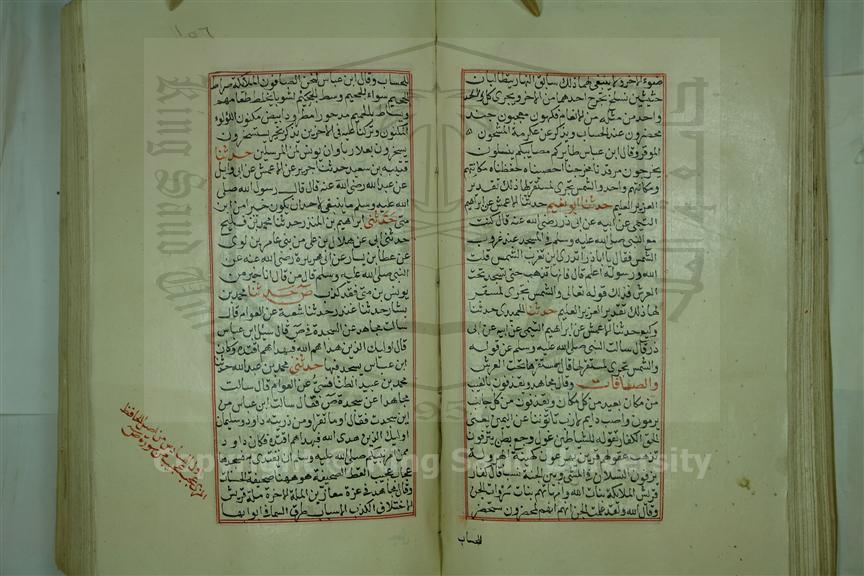 ضوء الاخر ولا ينبغي لهما ذلك سابق النهار يتطالبان
حثيثين نسلخ نخرج احدهما من الاخر ونجري كل واحد
واحد من مثله من الانعام فكهون معجبون جند
محضرون عند الحساب ويذكر عن عكرمة المشحون
الموقر وقال ابن عباس طائركم مصائبكم ينسلون
يخرجون مرقدنا مخرجنا احصيناه حفظناه مكانتهم
ومكانهم واحد والشمس تجري لمستقر لها ذلك تقدير
العزيز العليم حدثنا ابو نعيم حدثنا الاعمش عن ابراهيم
التيمي عن ابيه عن ابي ذر رضي الله عنه قال كنت
مع النبي صلى الله عليه وسلم في المسجد عند غروب
الشمس فقال يا ابا ذر اتدري اين تغرب الشمس قلت
الله ورسوله اعلم قال فانها تذهب حتى تسجد تحت
العرش فذلك قوله تعالى والشمس تجري لمستقر
لها ذلك تقدير العزيز العليم حدثنا الحميدي حدثنا
وكيع حدثنا الاعمش عن ابراهيم التيمي عن ابيه عن ابي
ذر قال سالت النبي صلى الله عليه وسلم عن قوله
والشمس تجري لمستقر لها قال مستقرها تحت العرش
والصافات وقال مجاهد ويقذفون بالغيب
من مكان بعيد من كل مكان ويقذفون من كل جانب
يرمون واصب دائم لازب لازم تاتوننا عن اليمين يعني
الحق الكفار تقوله للشيطان غول وجع بطن ينزفون
لا تذهب عقولهم قرين شيطان يهرعون كهيئة الهرولة
يزفون النسلان في المشي وبين الجنة نسبا قال كفار
قريش الملائكة بنات الله وامهاتهم بنات سروات الجن
وقال الله ولقد علمت الجنة انهم لمحضرون ستحضر
للحساب
للحساب وقال ابن عباس لنحن الصافون الملائكة صراط
الجحيم سواء الجحيم ووسط الجحيم لشوبا يخلط طعامهم
ويساط بالحميم مدحورا مطرودا بيض مكنون اللؤلؤ
المكنون وتركنا عليه في الاخرين يذكر بخير يستسخرون
يسخرون بعلا ربا وان يونس لمن المرسلين حدثنا
قتيبة بن سعيد حدثنا جرير عن الاعمش عن ابي وائل
عن عبد الله رضي الله عنه قال قال رسول الله صلى
الله عليه وسلم ما ينبغي لاحد ان يكون خيرا من ابن
متى حدثني ابراهيم بن المنذر حدثنا محمد بن فليح
حدثني ابي عن هلال بن علي من بني عامر بن لوي
عن عطاء بن يسار عن ابي هريرة رضي الله عنه عن
النبي صلى الله عليه وسلم قال من قال انا خير من
يونس بن متى فقد كذب ص حدثنا محمد بن
بشار حدثنا غندر حدثنا شعبة عن العوام قال
سالت مجاهدا عن السجدة في ص قال سئل ابن عباس
قال اوليك الذين هدى الله فبهداهم اقتده وكان
ابن عباس يسجد فيها حدثني محمد بن عبد الله حدثنا
محمد بن عبيد الطنافسي عن العوام قال سالت
مجاهدا عن سجدة ص فقال سالت ابن عباس من
اين سجدت فقال او ما تقرا ومن ذريته داود وسليمان
اوليك الذين هدى الله فبهداهم اقتده فكان داود
ممن امر نبيكم صلى الله عليه وسلم ان يقتدي به
عجاب عجيب القط الصحيفة هو ههنا صحيفة الحساب
وقال مجاهد في عزة معازين الملة الاخرة ملة قريش
الاختلاق الكذب الاسباب طرق السماء في ابوابها
Copyright © King Saud University
King Saud
1957